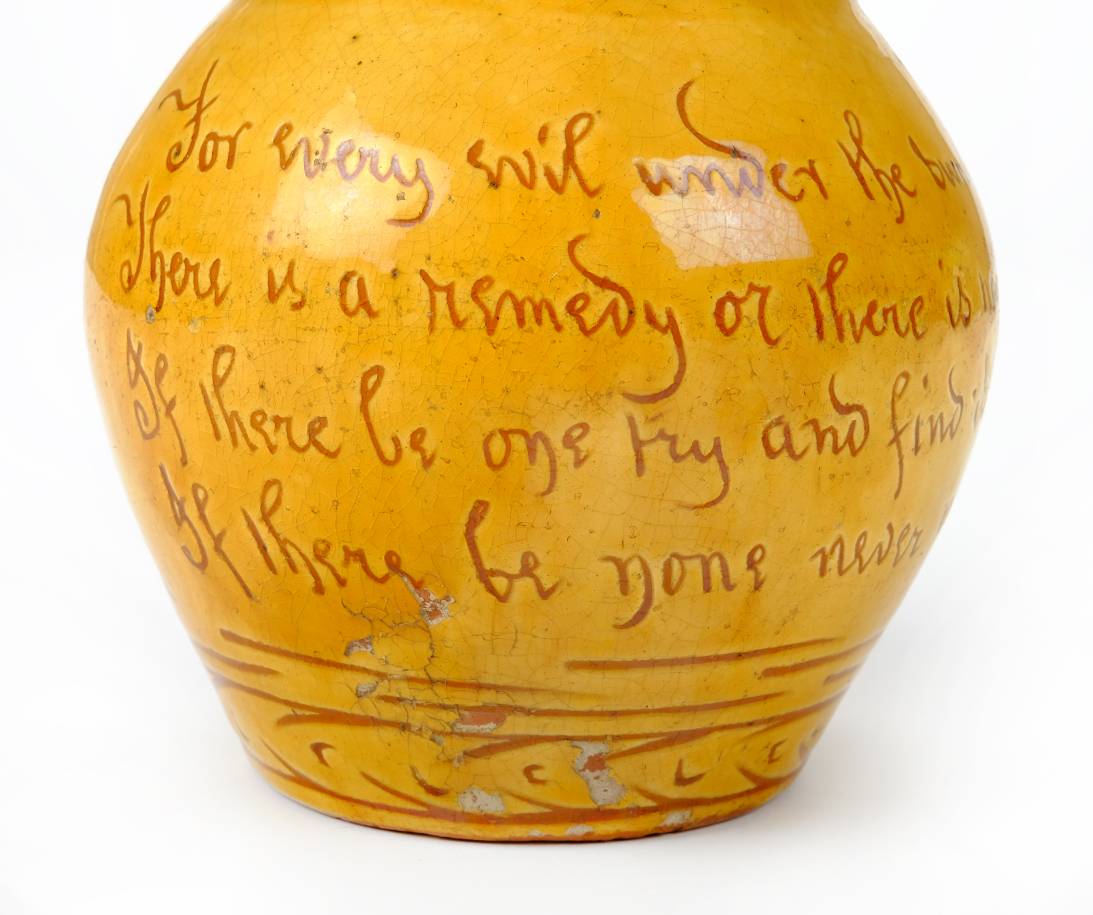 For every evil under the
There is a remedy or there is
If there be one try and find
If there be none never